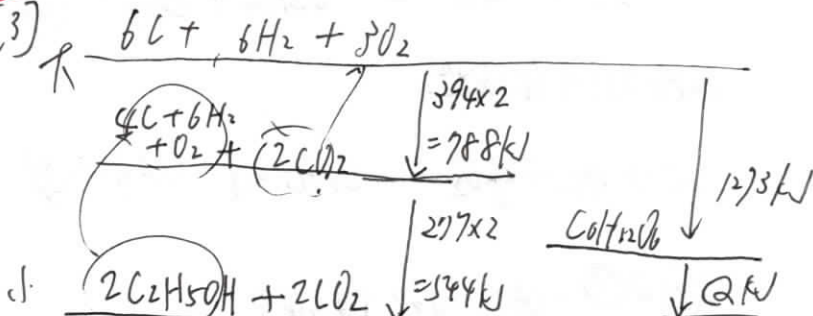 3]
6C + 6H2 + 3O2
大
4C+6H2
+O2 + (2CO2
394×2
=788kJ
1273kJ
277×2
=544kJ
C6H12O6
小
2C2H5OH + 2CO2
QkJ